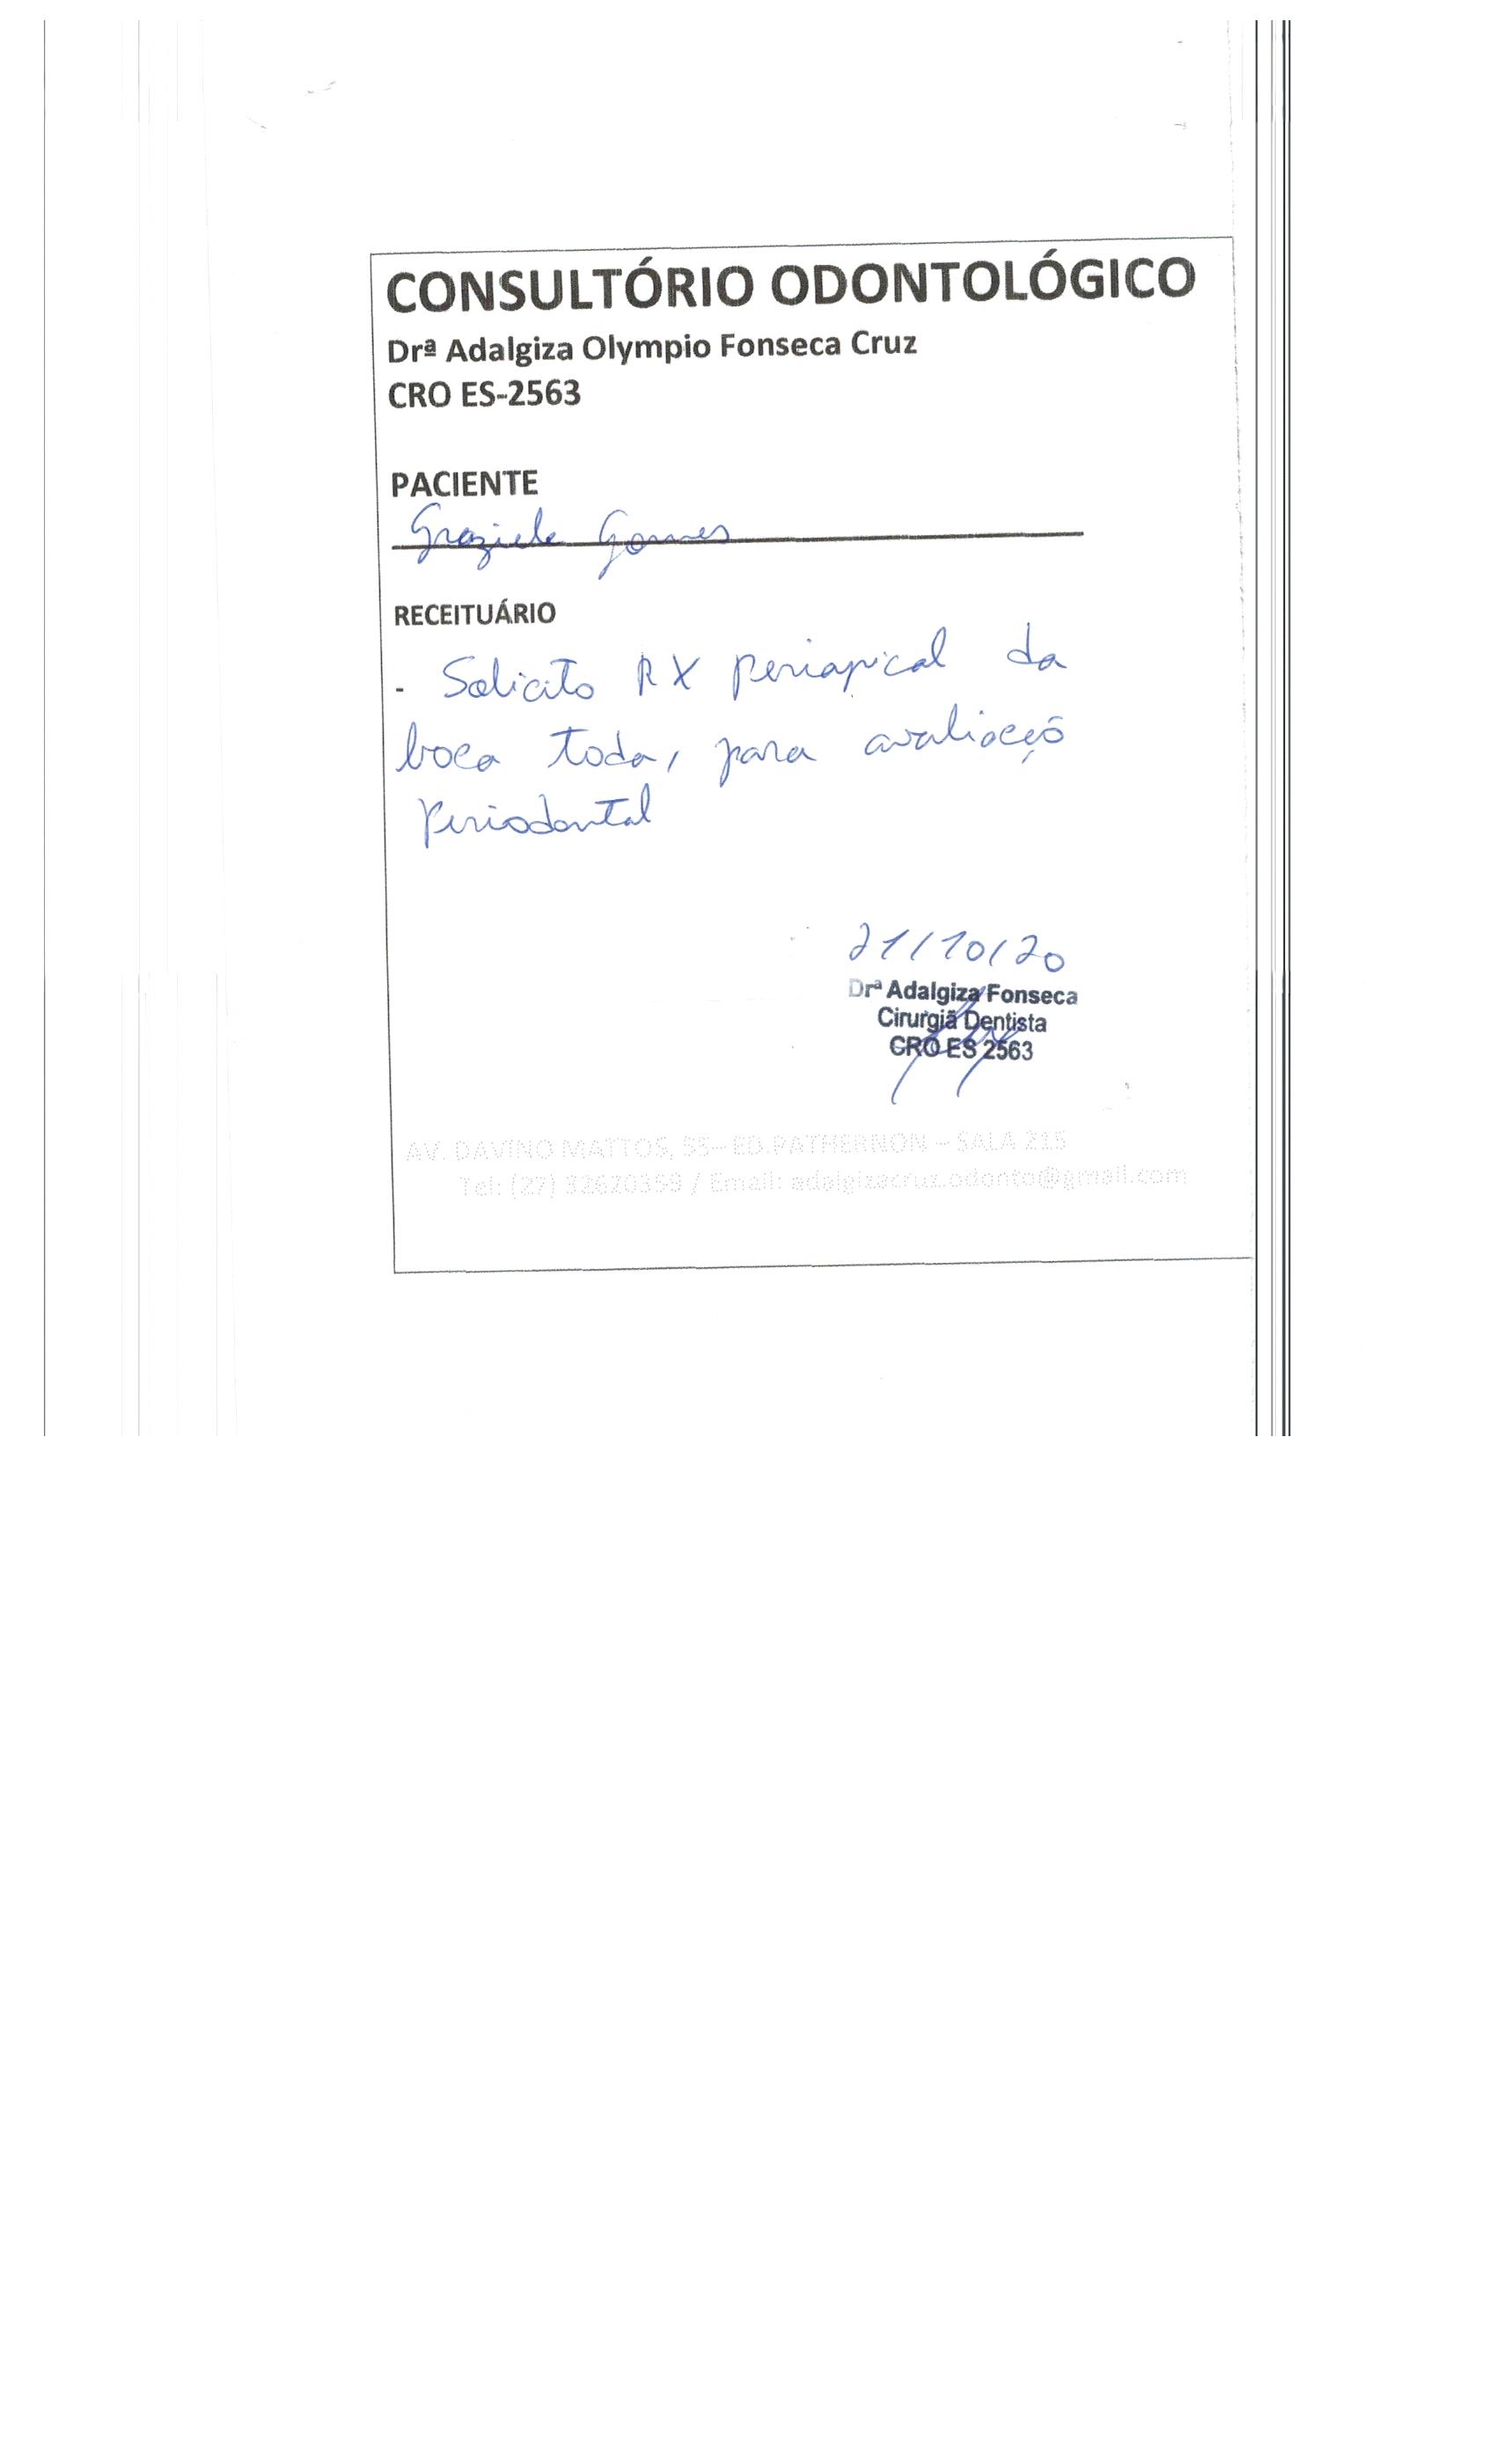 CONSULTÓRIO ODONTOLÓGICO
Drª Adalgiza Olympio Fonseca Cruz
CRO ES-2563
PACIENTE
Graziele Gomes
RECEITUÁRIO
- Solicito RX periapical da
boca toda, para avaliação
periodontal
21/10/20
Drª Adalgiza Fonseca
Cirurgiã Dentista
CRO ES 2563
AV. DAVINO MATTOS, 55– ED.PATHERNON – SALA 215
Tel: (27) 32620359 / Email: adalgizacruz.odonto@gmail.com